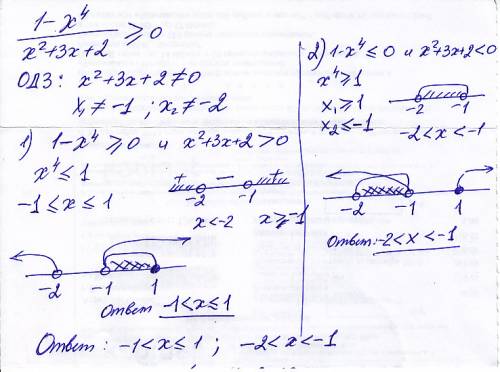 1-x⁴
x²+3x+2 ≥0
ОДЗ: x²+3x+2≠0
x₁≠-1 ; x₂≠-2
1) 1-x⁴≥0 и x²+3x+2>0
x⁴≤1
-1≤x≤1
+ - +
-2 -1
x<-2 x>-1
-2 -1 1
Ответ -1<x≤1
2) 1-x⁴≤0 и x²+3x+2<0
x⁴≥1
x₁≥1
x₂≤-1
-2 -1
-2<x<-1
-2 -1 1
Ответ: -2<x<-1
Ответ: -1<x≤1 ; -2<x<-1